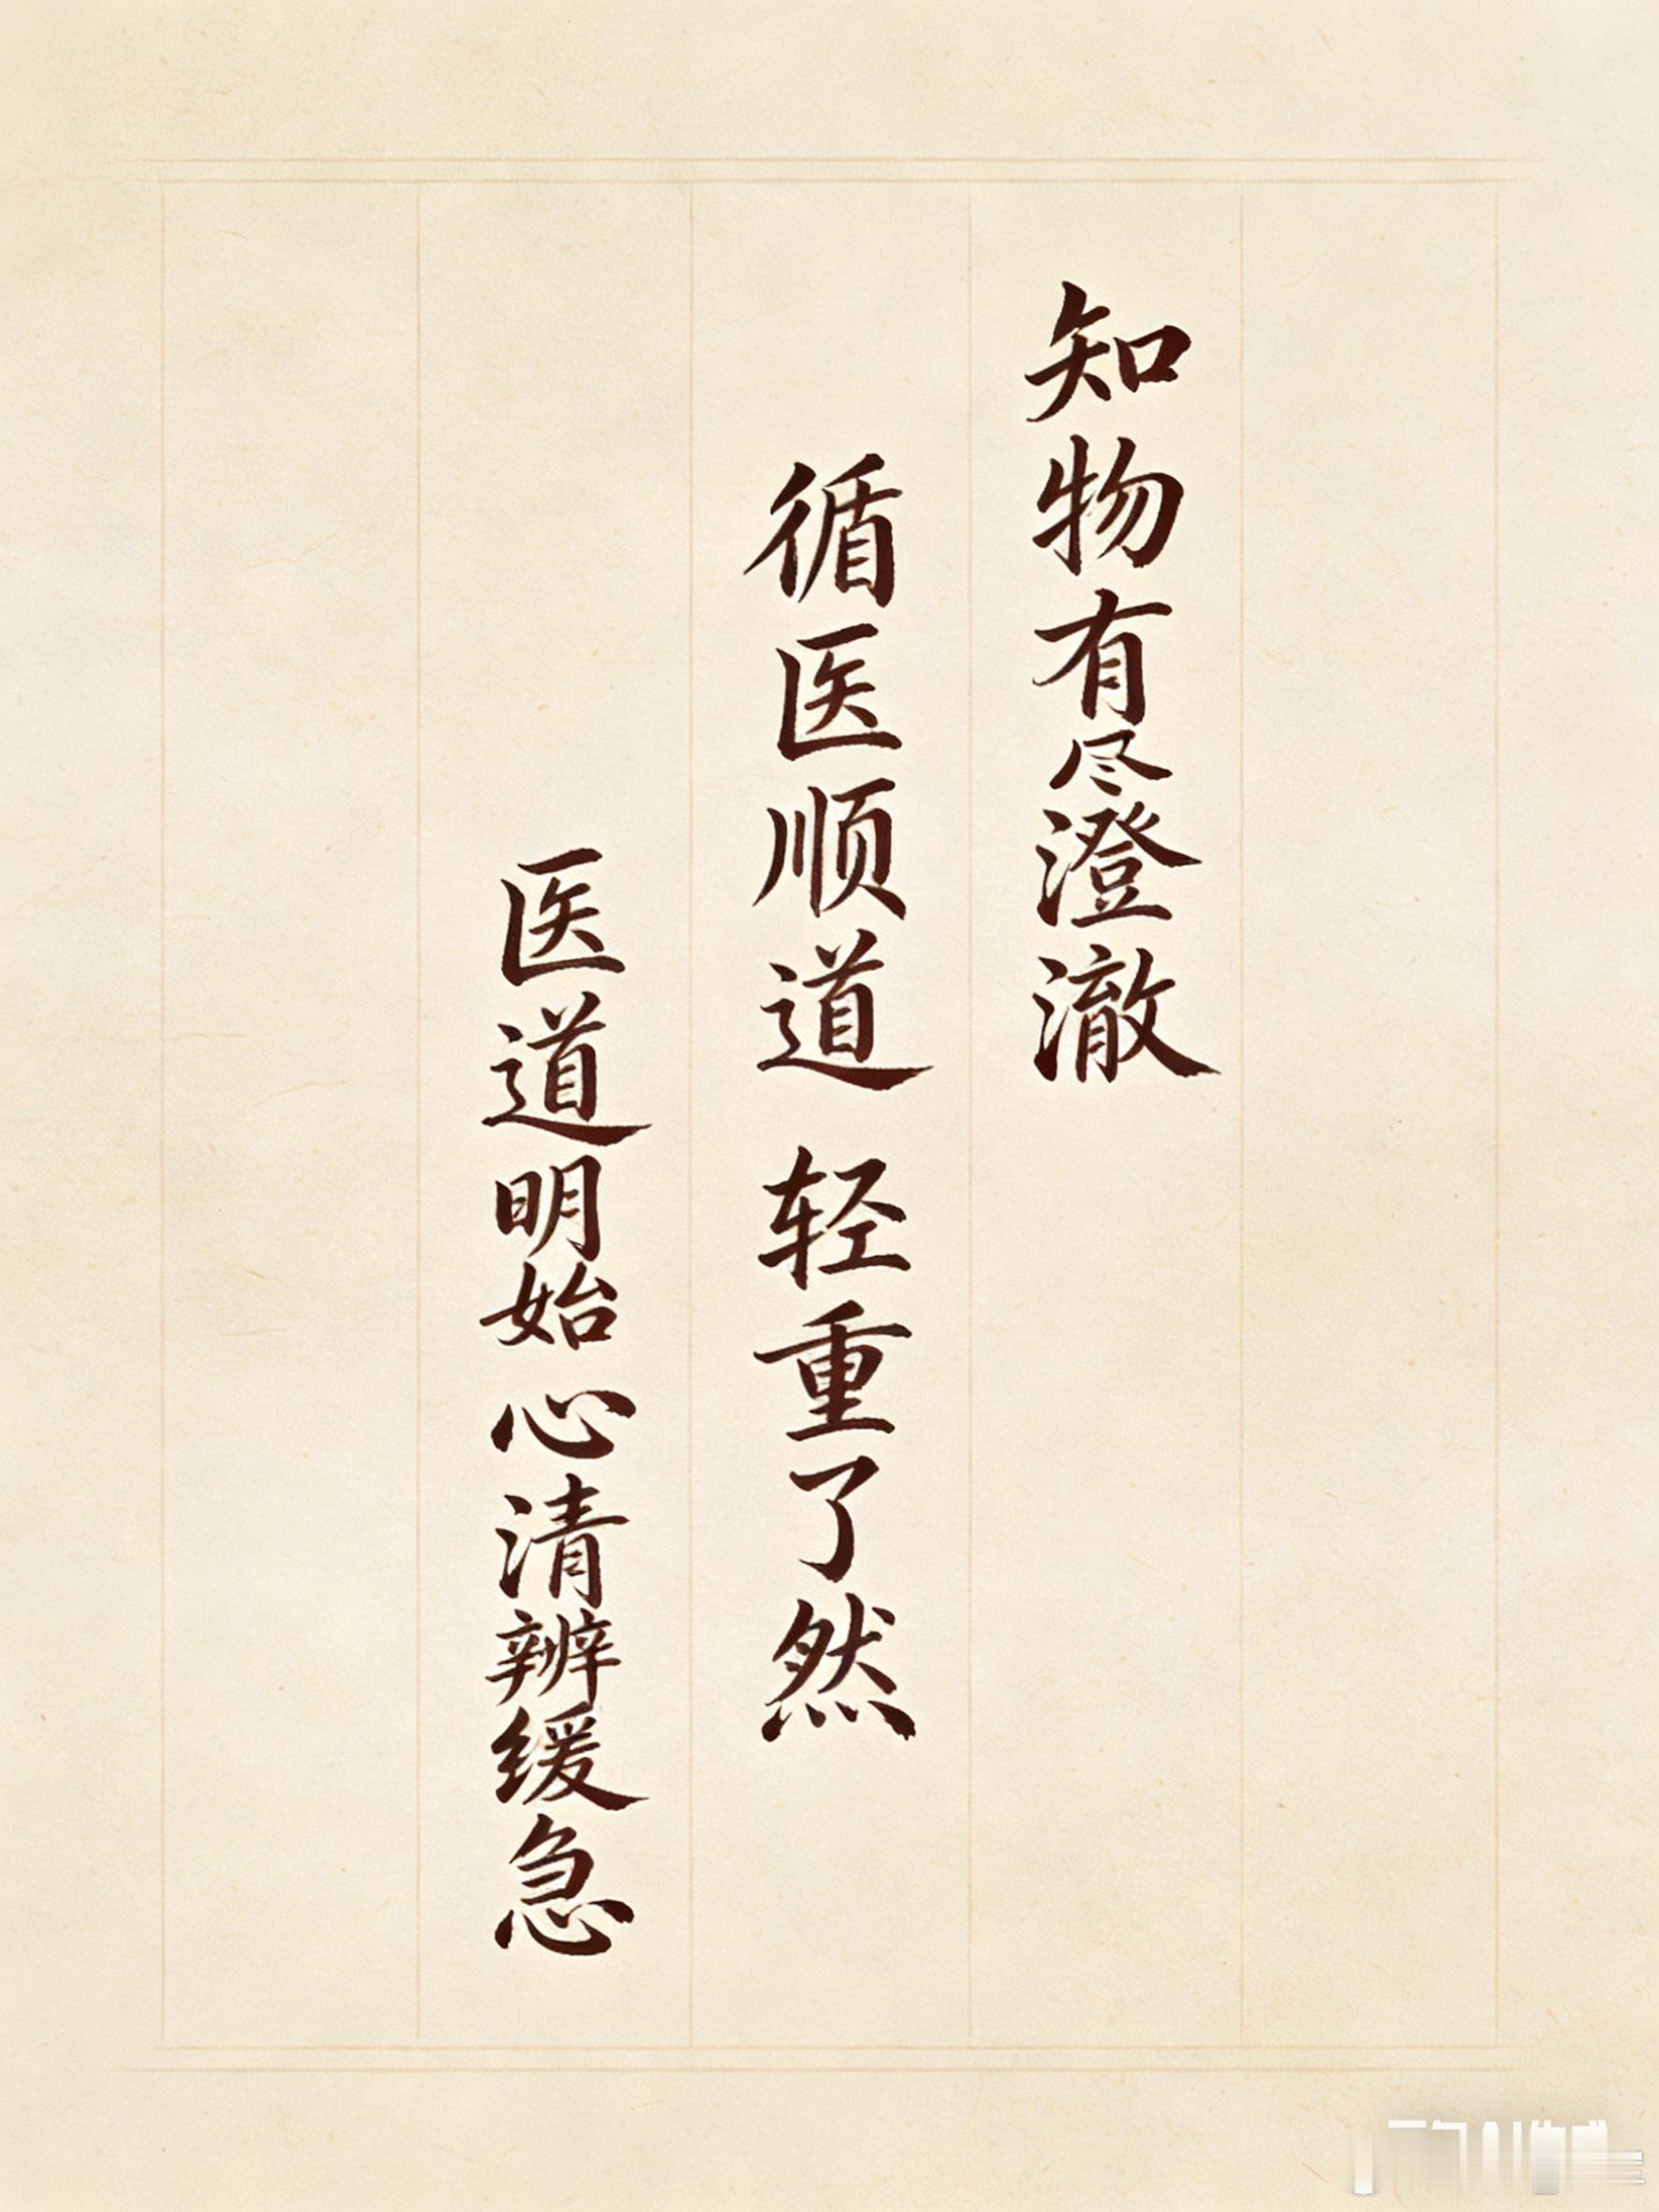 知物有尽澄澈
循医顺道 轻重了然
医道明始 心清辨缓急